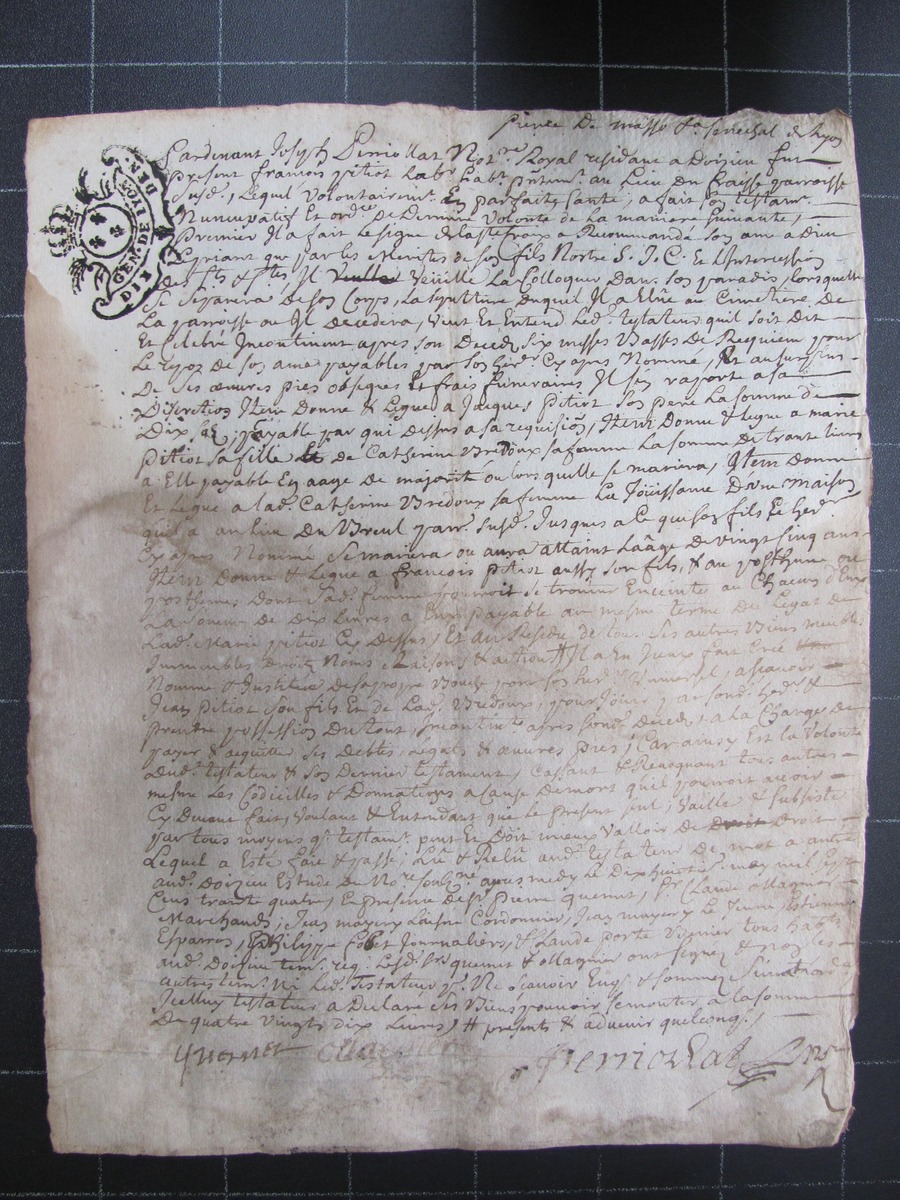 pierre De masso Sénéchal de Lyon
GEN.DE LYON
DIX DEN
Pardevant Joseph Perriollat Not.re Royal residant a Doizieu fut
present francois pitiot Lab.r hab.t au Lieu Du fraisse parroisse
Susd. Lequel volontairem.t En parfaite Santé, a fait Son testam.t
Nuncupatif Et ord.re De Derniere Volonté de La maniere Suivante,
Premier Il a fait Le Signe de la S.te Croix a Recommandé Son ame a Dieu
Le priant que par Les Merites de Son fils Nostre S. J. C. Et L'Intercession
Des S.ts & S.tes, Il Veuille Veüille La Colloquer Dans Son paradis, Lorsquelle
Se Separera De Son Corps, La Sepulture duquel Il a Elüe au Cimetiere De
La parroisse ou Il Decedera, Veut Et Entend Led. testateur quil Soit Dit
Et Celebré Incontinent apres Son Decedz Six messes Basses De Requiem pour
Le repos de Son ame payables par Son her.r Cy apres Nommé, Et au Surplus
De Ses œuvres pies obseques Et frais funeraires Il Sen raporte a Sa
Discretion Item Donne & Legue a Jacques pitiot Son pere La Somme de
Dix Sols, payable par qui Dessus a Sa requision, Item Donne & Legue a marie
pitiot Sa fille Et De Catherine Vredoux Sa femme La Somme de trante Livres
a Elle payable En aage De majorité ou lorsquelle Se mariera, Item Donne
Et Legue a lad. Catherine Vredoux Sa femme La Joüissance D'une maison
quil a au Lieu Du Breul parr. Susd. Jusques a Ce que Son fils Et her.r
Cy apres Nommé Se mariera ou aura attaint Laâge De vingt Cinq ans
Item Donne & Legue a francois pitiot aussy Son fils, & au posthume ou
posthumes Dont Sad. femme pourroit Se trouver Enceinte au Chacun d'Eux
La Somme De Dix Livres a Eux payable au mesme terme Du Legat De
Lad. Marie pitiot Cy Dessus, Et au Residu de tous Ses autres Biens meubles
Immeubles Droits Noms Raisons & actions # Il a En Iceux fait Creé
Nommé & Institué De Sa propre Bouche pour Son her.r Universel, a Scavoir
Jean Pitiot Son fils Et de Lad. Vredoux, pour Joüir par Sond. her.r &
prendre possession Du tout Incontin.t apres Sond. Decedz a La Charge De
payer & acquitter Ses Debtes, Legats & œuvres pies, Car ainsy Est La Volonté
Dud. testateur & Son Dernier testament, Cassant & Revoquant tous autres
mesme Les Codicilles & Donnations a Cause De mort quil pourroit avoir
Cy Devant fait, Voulant & Entendant que Le present Seul, Vaille & Subsiste
par tous moyens q. testam.t peut Et Doit mieux Valloir De Droit Droit
Lequel a Esté fait & passé, Lu & Relû aud. testateur De mot a autre
aud. Doizieu Estude Du No.re Soub.né apres midy Le Dix huict.e may mil Sept
Cens trante quatre, En presence De S.r Pierre quernet, S.r Claude Magnier
Marchands, Jean mayery Laisne Cordonnier, Jean mayery Le Jeune, Estienne
Esparron, Philippe Journaliers, & Claude porte Vernier tous hab.ts
aud. Doizieu tem. req. Lesd. S.rs quernet & Magnier ont Signez & non Les
autres tem. Ni Led. Testateur p. Ne Scavoir Enq. & Sommez
Icelluy testateur a Declaré Ses Biens pouvoir Se monter a la Somme
De quatre Vingts dix Livres, # presents & advenir quelconq.
quernet Magnier Perriollat No.re